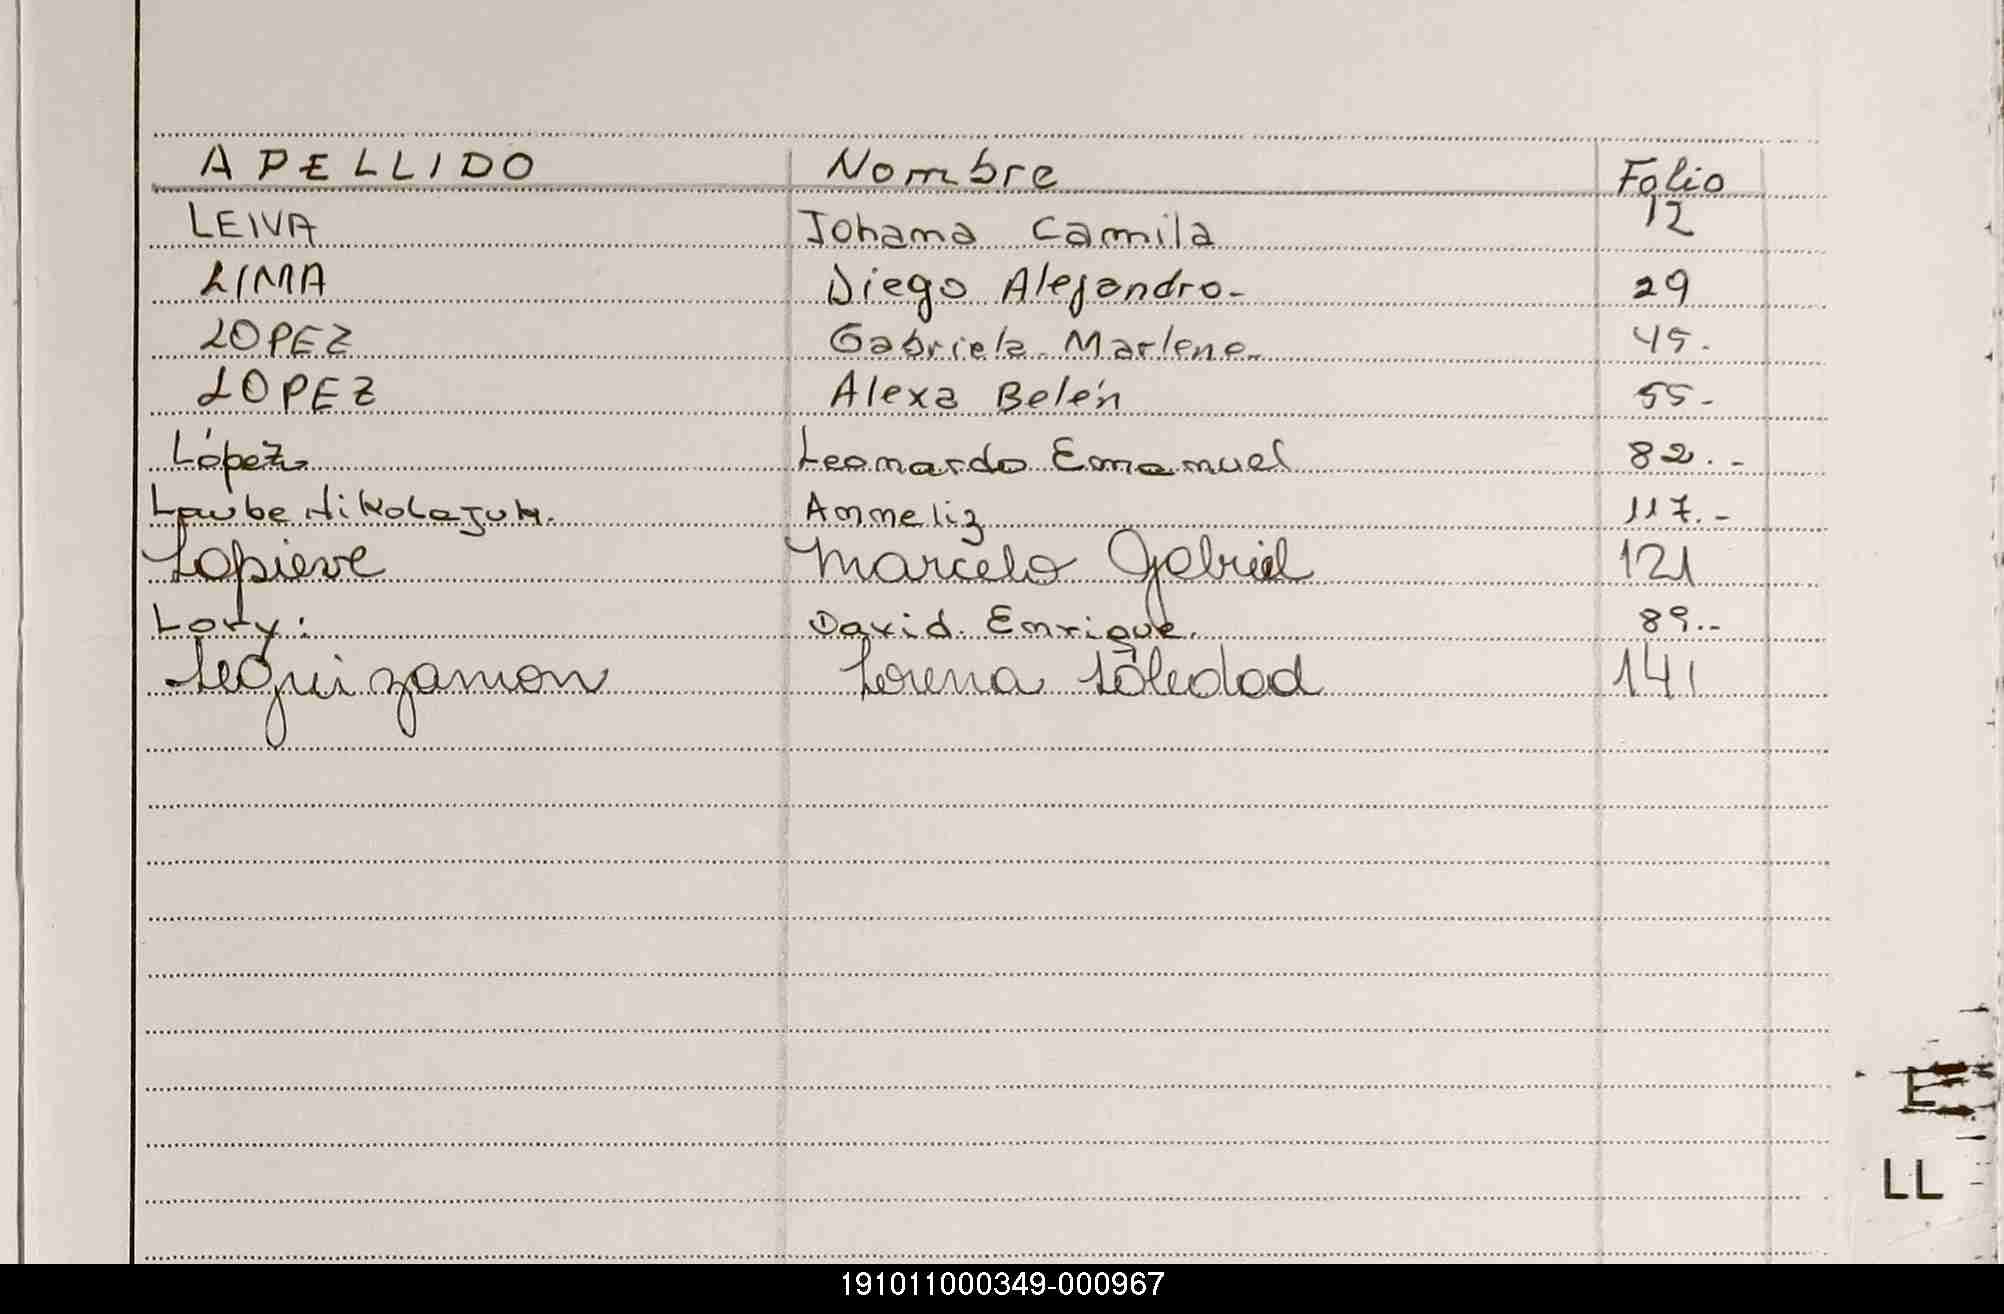 APELLIDO Nombre Folio
LEIVA Johana Camila 12
LIMA Diego Alejandro- 29
LOPEZ Gabriela Marlene. 45.
LOPEZ Alexa Belén 55-
López Leonardo Emanuel 82.-
Laube Anneliz 117.-
Lapieve Marcelo Gabriel 121
Lory: David Enrique. 89.-
Leguizamon Lorena Soledad 141
L
LL
191011000349-000967